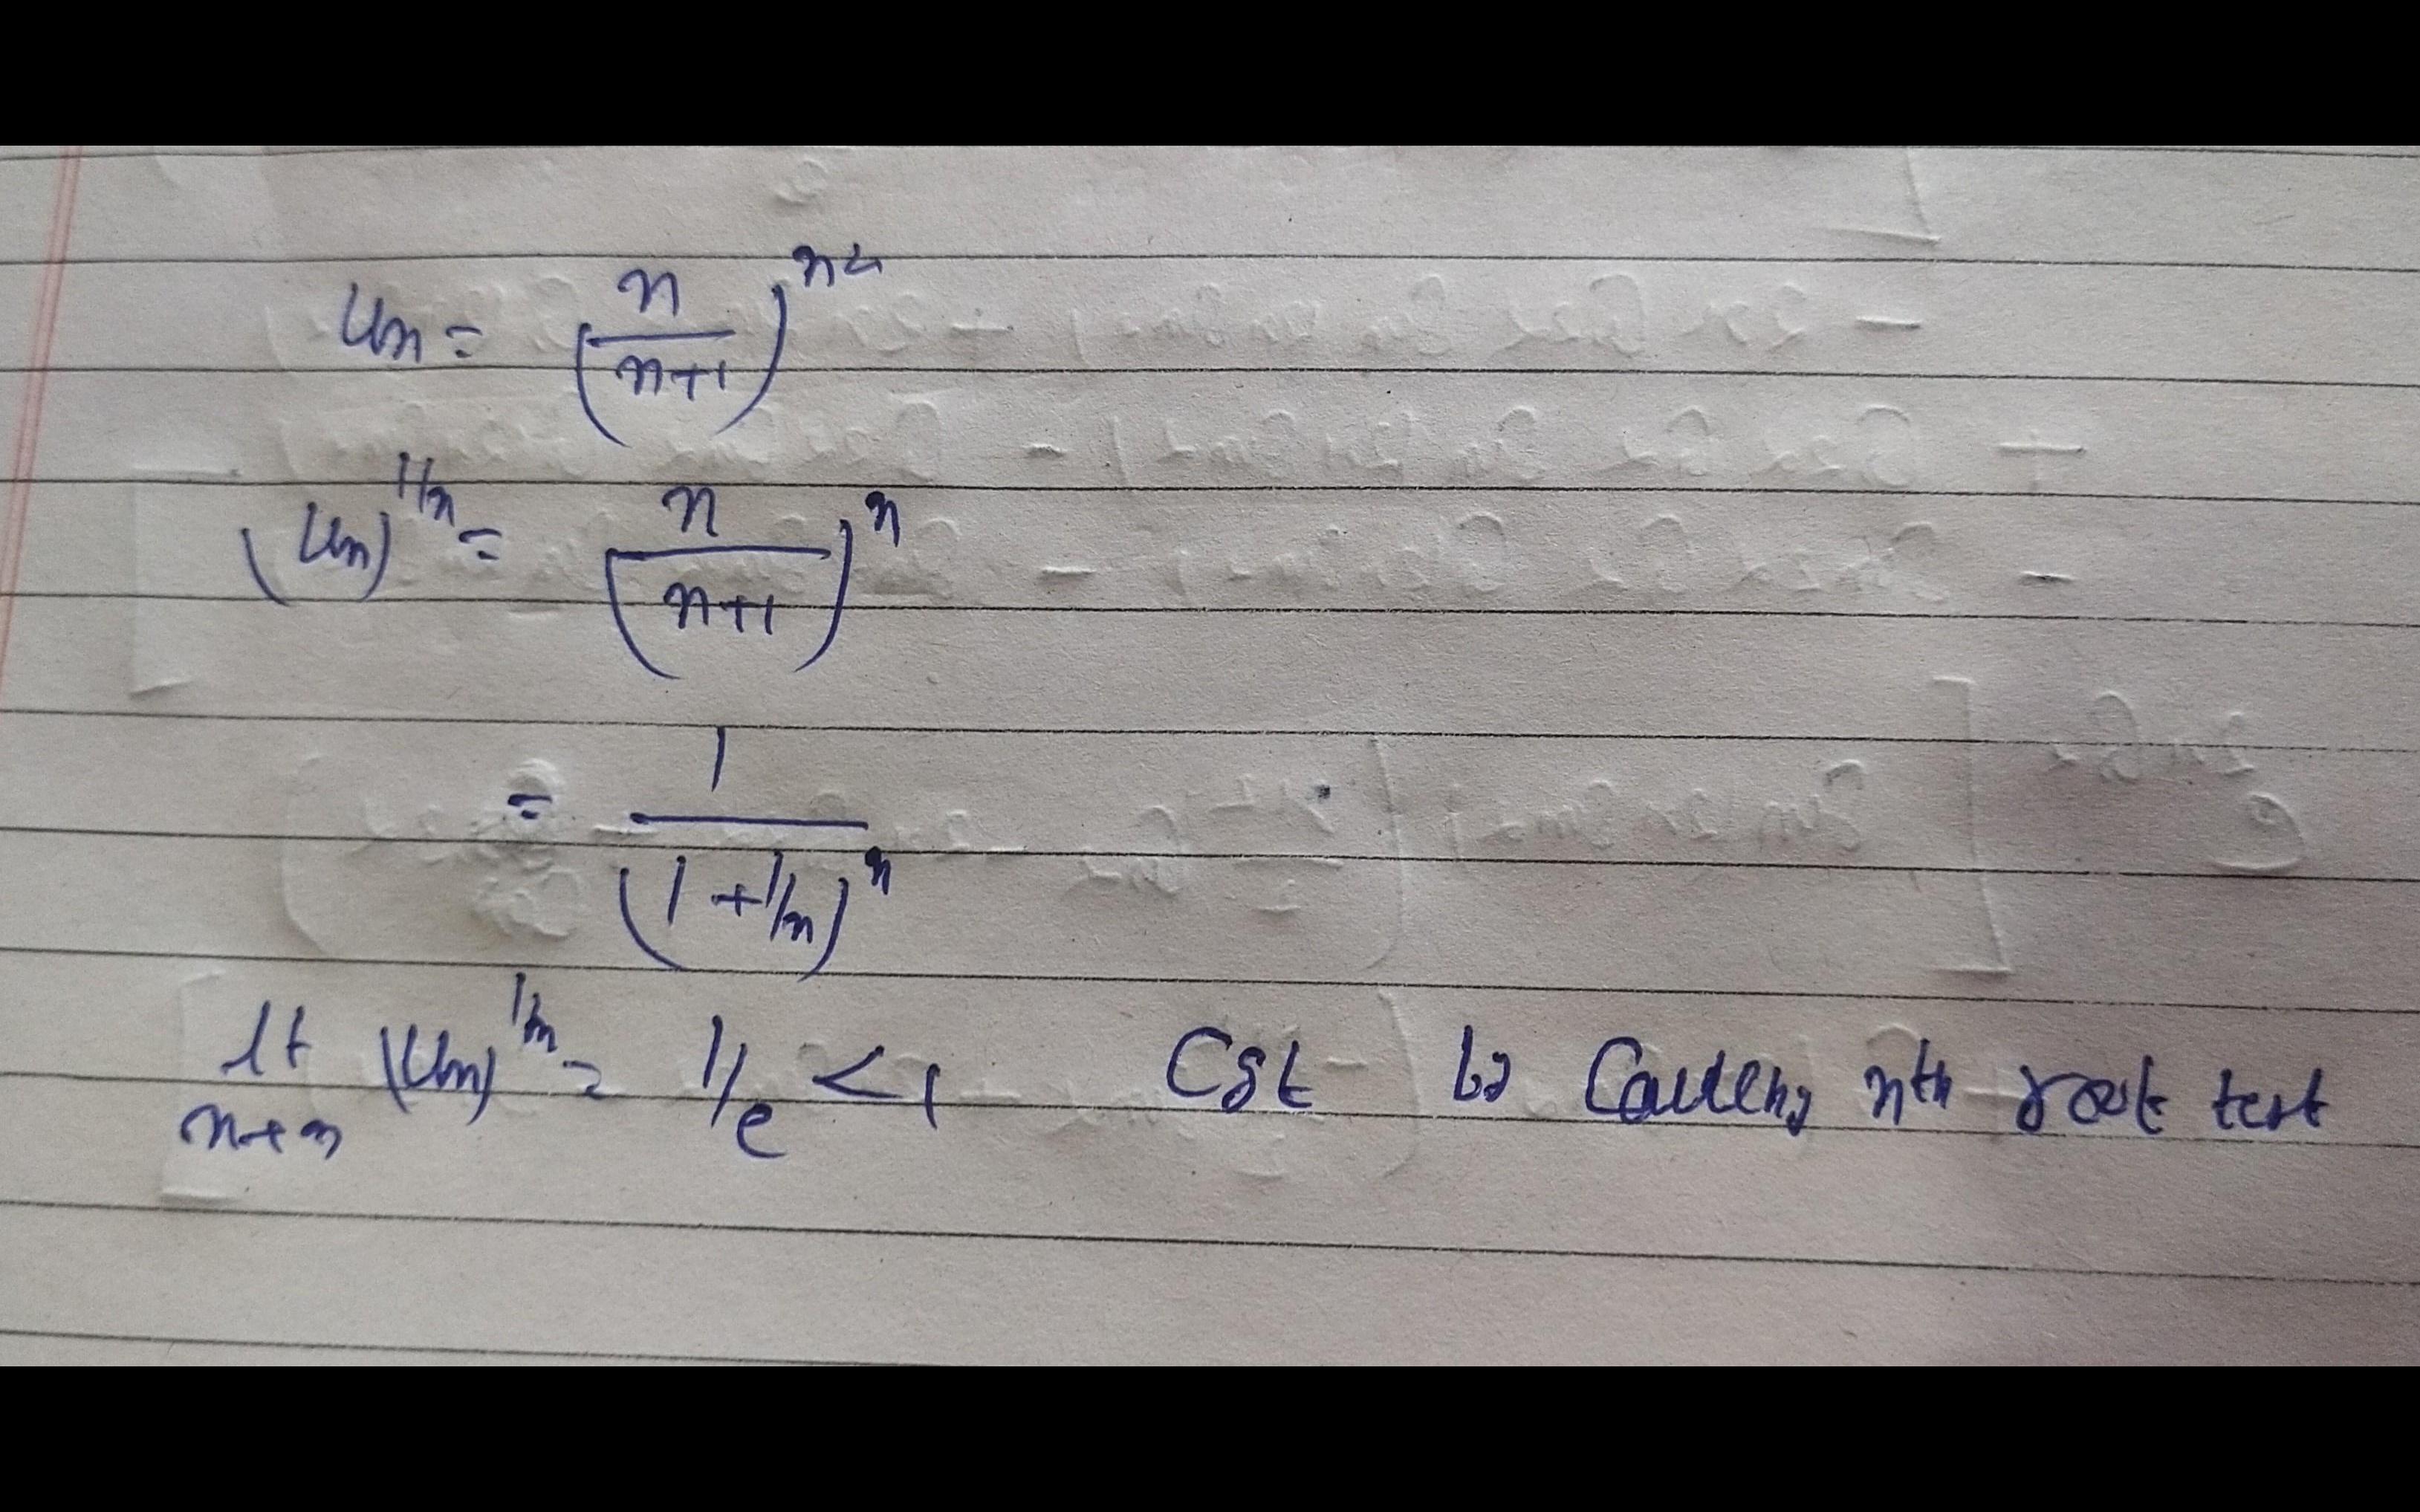 Un = (n/n+1)^n²
(Un)^1/n = (n/n+1)^n
= 1/(1+1/n)^n
lt n→∞ (Un)^1/n = 1/e < 1 Cgt by Cauchy nth root test